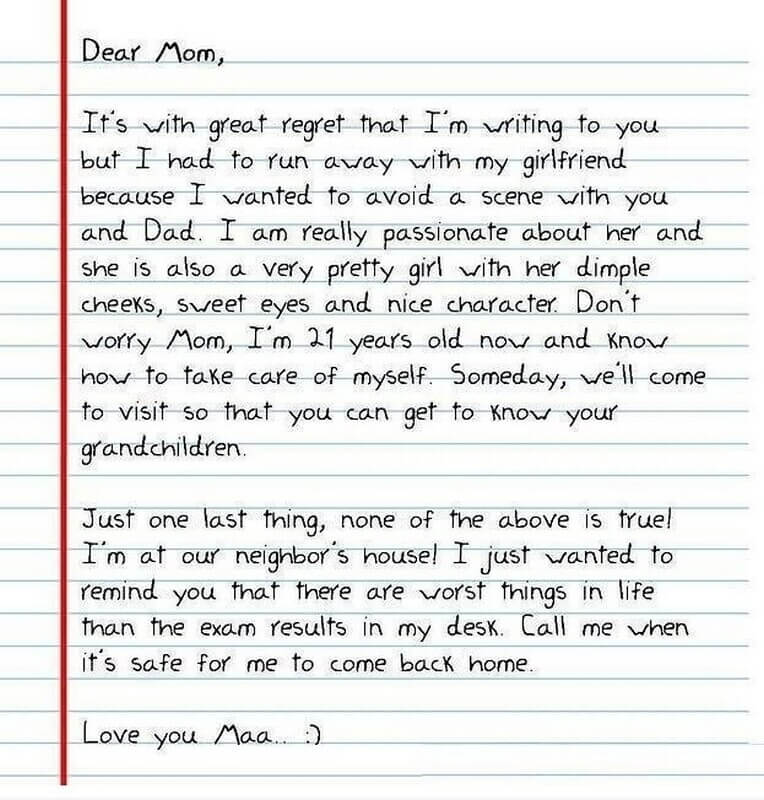 Dear Mom,
It's with great regret that I'm writing to you
but I had to run away with my girlfriend
because I wanted to avoid a scene with you
and Dad. I am really passionate about her and
she is also a very pretty girl with her dimple
cheeks, sweet eyes and nice character. Don't
worry Mom, I'm 21 years old now and know
how to take care of myself. Someday, we'll come
to visit so that you can get to know your
grandchildren.
Just one last thing, none of the above is true!
I'm at our neighbor's house! I just wanted to
remind you that there are worst things in life
than the exam results in my desk. Call me when
it's safe for me to come back home.
Love you Maa.. :)